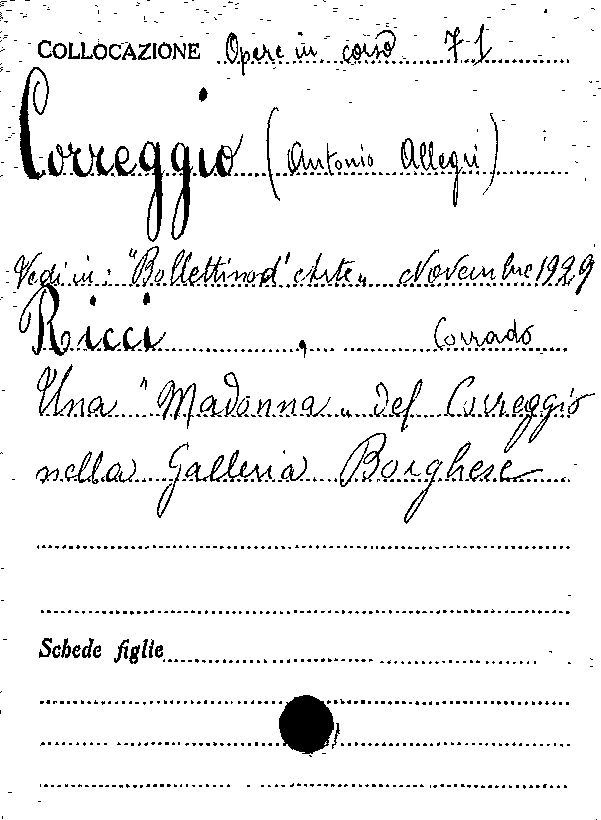 COLLOCAZIONE Opere in corso 71
Correggio (Antonio Allegri)
Vedi in: "Bollettino d'Arte„ Novembre 1929
Ricci, Corrado
Una "Madonna„ del Correggio
nella Galleria Borghese
Schede figlie